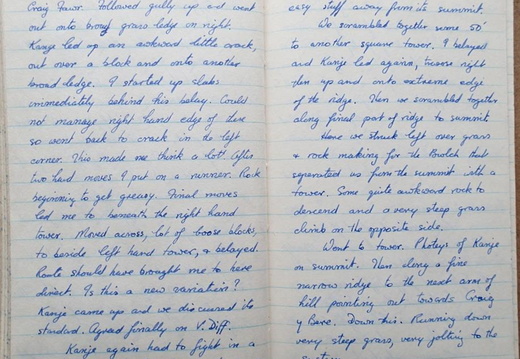 Craig Fawr. Followed gully up and went
out onto broad grass ledge on right.
Kanje led up an awkward little crack,
out over a block and onto another
broad ledge. I started up slabs
immediately behind his belay. Could
not manage right hand edge of these
so went back to crack in the left
corner. This made me think a lot! After
two hard moves I put on a runner. Rock
beginning to get greasy. Final moves
led me to beneath the right hand
tower. Moved across, lot of loose blocks,
to beside left hand tower, & belayed.
Route should have brought me to here
direct. Is this a new variation?
Kanje came up and we discussed its
standard. Agreed finally on V. Diff.
Kanje again had to fight in a
easy stuff away from its summit.
We scrambled together some 50'
to another square tower. I belayed
and Kanje led again, traverse right
then up and onto extreme edge
of the ridge. Then we scrambled together
along final part of ridge to summit
Here we struck left over grass
& rock making for the Bwlch that
separated us from the summit with a
tower. Some quite awkward rock to
descend and a very steep grass
climb on the opposite side.
Went to tower. Photo's of Kanje
on summit. Then along a fine
narrow ridge to the next arm of
hill pointing out towards Craig
y Bere. Down this. Running down
very steep grass, very jolting to the